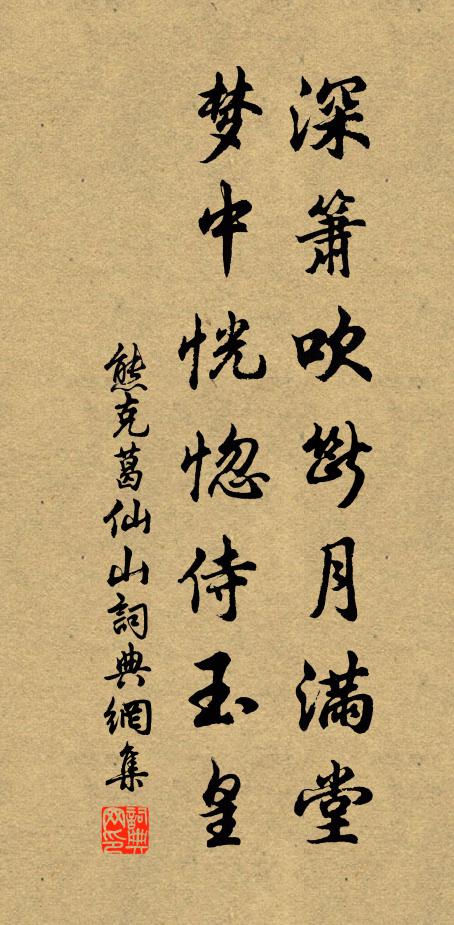 深箫吹断月满堂
梦中恍惚侍玉皇
熊克葛仙山詞典網集
詞典网印